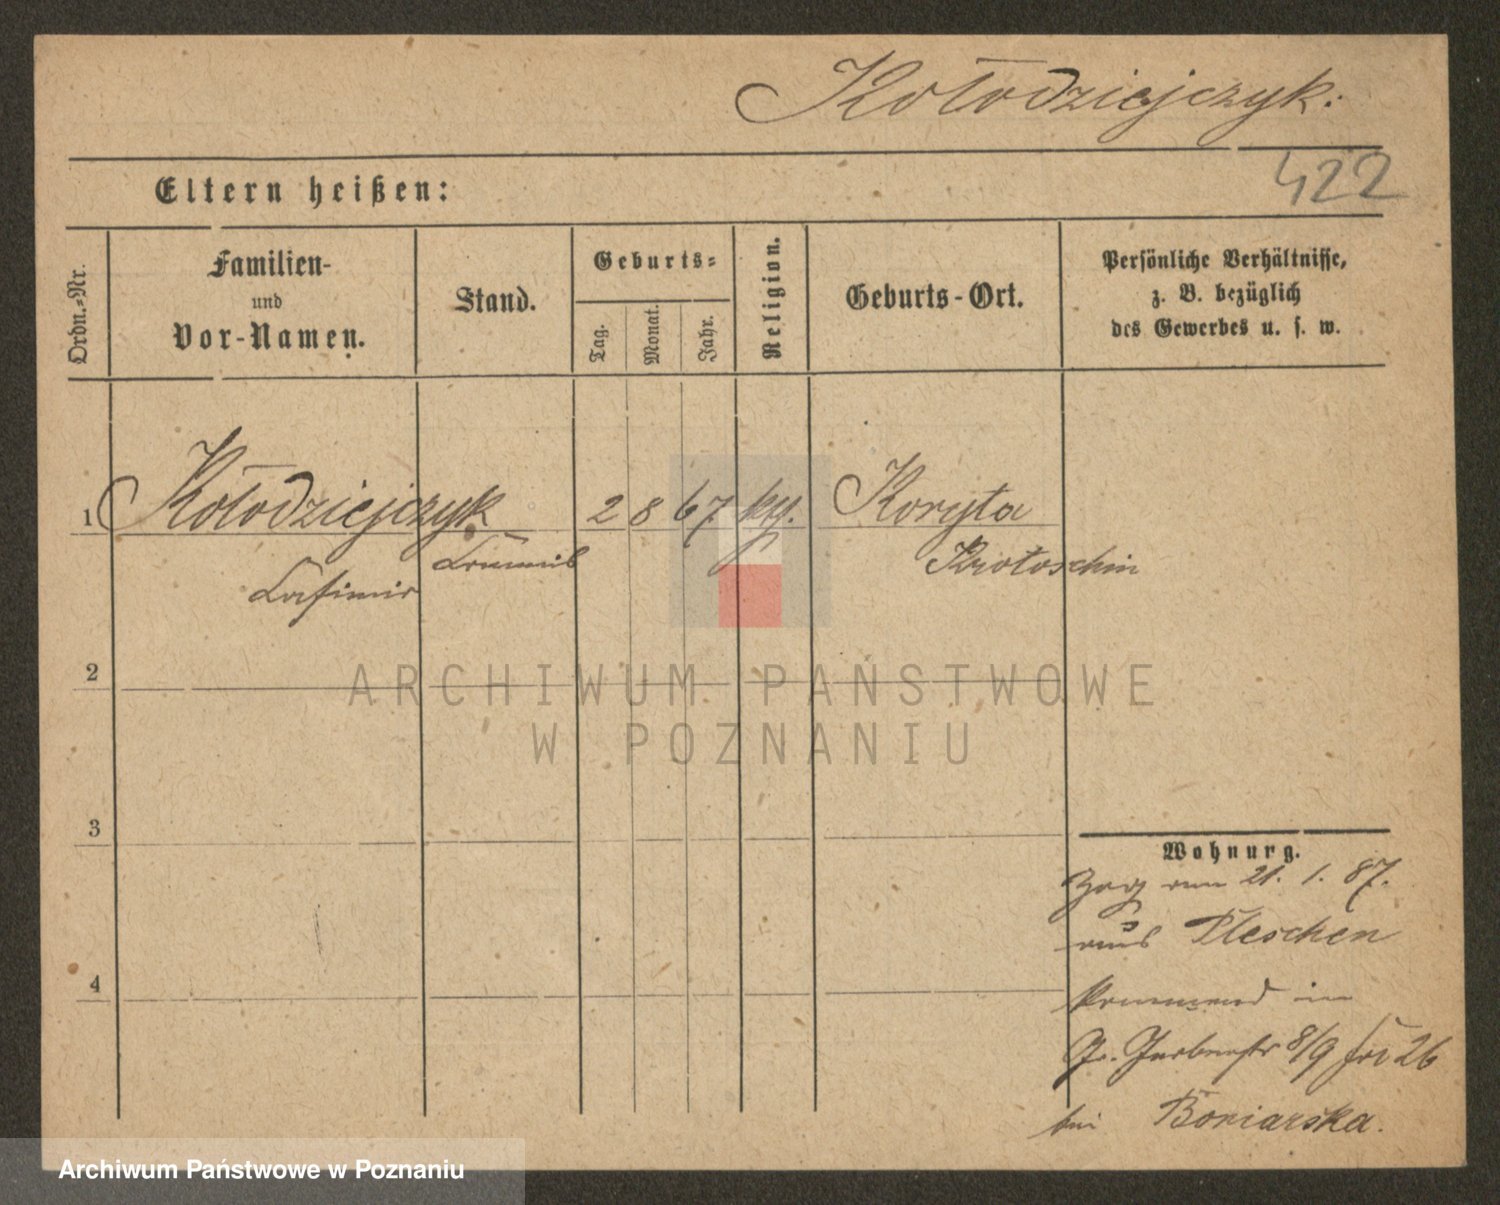 Kołodziejczyk.
422
Eltern heißen:
Ordn.-Nr.
Familien-
und
Vor-Namen.
Stand.
Geburts-
Tag.
Monat.
Jahr.
Religion.
Geburts-Ort.
Persönliche Verhältnisse,
z. B. bezüglich
des Gewerbes u. s. w.
1 Kołodziejczyk 2 8 67. Koryta
Krotoschin
Casimir
2
ARCHIWUM PAŃSTWOWE
W POZNANIU
3
Wohnung.
Zog am 21. 1. 87.
aus Pleschen
kommend in
Gr. Gerberstr 8/9 26
bei Boniarska.
4
Archiwum Państwowe w Poznaniu